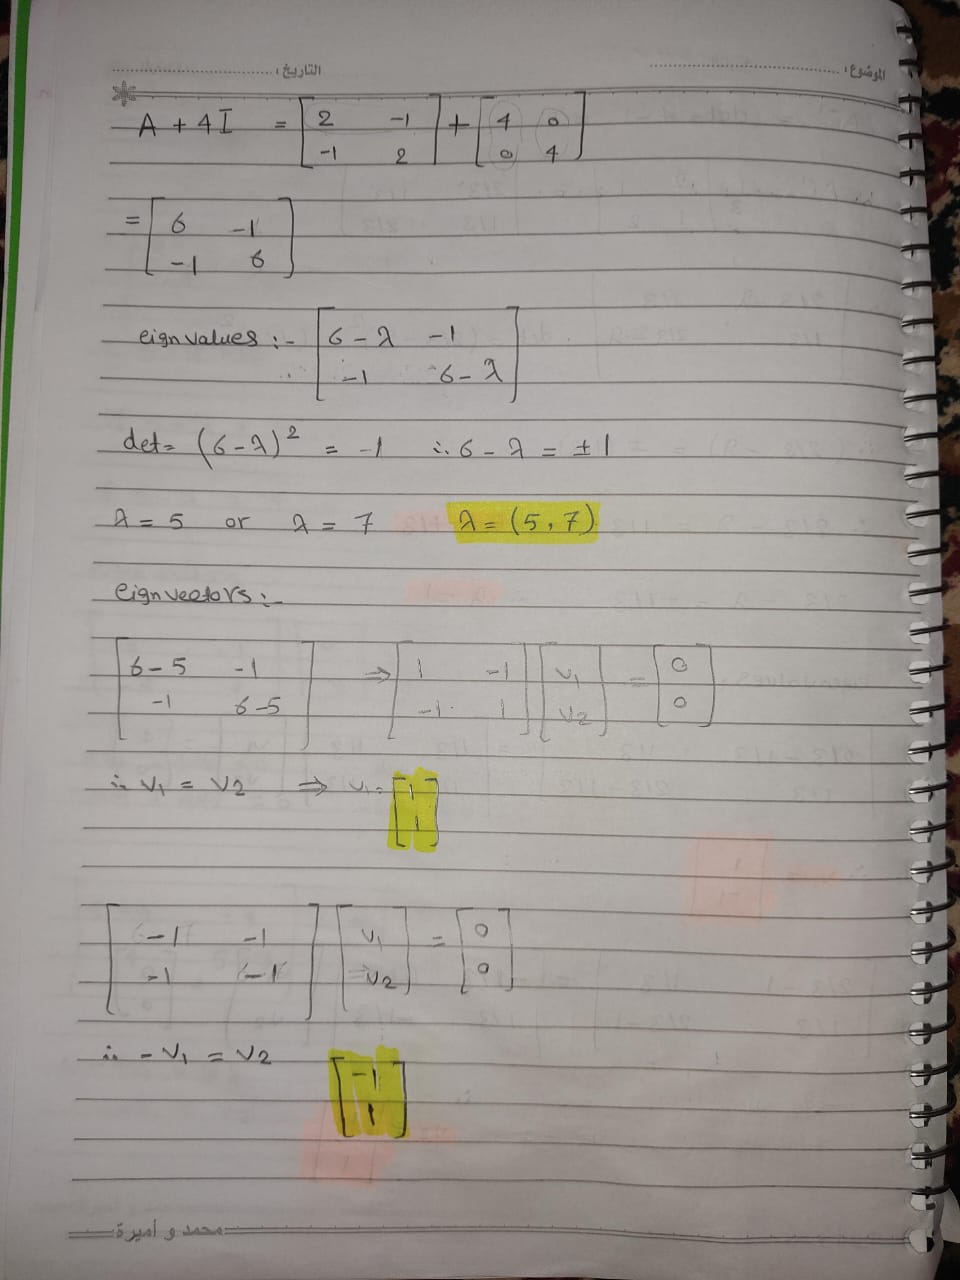 الموضوع: التاريخ:
A + 4I = [ 2 -1 ; -1 2 ] + [ 4 0 ; 0 4 ]
= [ 6 -1 ; -1 6 ]
eignvalues :- [ 6-λ -1 ; -1 6-λ ]
det= (6-λ)² = -1 ∴ 6-λ = ±1
λ = 5 or λ = 7 λ = (5,7)
eignvectors :-
[ 6-5 -1 ; -1 6-5 ] ⇒ [ 1 -1 ; -1 1 ] [ v1 ; v2 ] = [ 0 ; 0 ]
∴ v1 = v2 ⇒ v1 = [ 1 ; 1 ]
[ -1 -1 ; -1 -1 ] [ v1 ; v2 ] = [ 0 ; 0 ]
∴ -v1 = v2 [ -1 ; 1 ]
محمد و أميرة